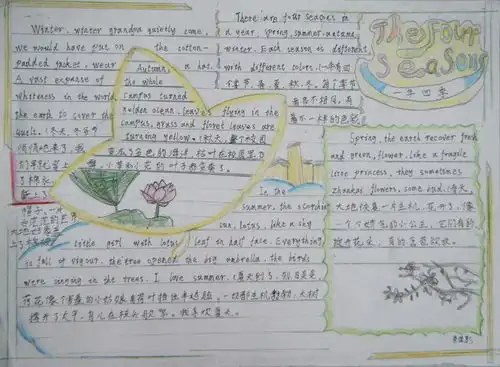 The Four
Seasons
一年四季
There are four seasons in
a year, spring, summer, autumn,
winter. Each season is different
with different colors. (一年有四
个季节,春、夏、秋、冬。每个季节
Winter, winter grandpa quietly come,
we would have put on the cotton-
padded jacket, wear a hat.
A vast expanse of
whiteness in the world,
the earth is cover the
quilt. (冬天,冬爷爷
悄悄地来了,我
Autumn,
the whole
campus turned
golden ocean, leaves flying in the
campus, grass and floret leaves are
turning yellow. (秋天,整个校园
变成了金色的海洋,枯叶在校园里飞
Spring, the earth recover fresh
and green, flower, like a fragile
little princess, they sometimes
zhankai flowers, some bud. (春天,
大地恢复一片生机,花开了,像
一个个娇气的小公主,它们有的
In the
summer, the scorching
sun, lotus, like a shy
little girl with lotus leaf in half face. Everything
is full of vigour, the tree opened the big umbrella, the birds
were singing in the trees. I love summer. (夏天到了,烈日炎炎,
荷花像个害羞的小姑娘用荷叶挡住半边脸。一切都生机勃勃,大树
撑开了大伞,鸟儿在枝头歌唱。我喜欢夏天。